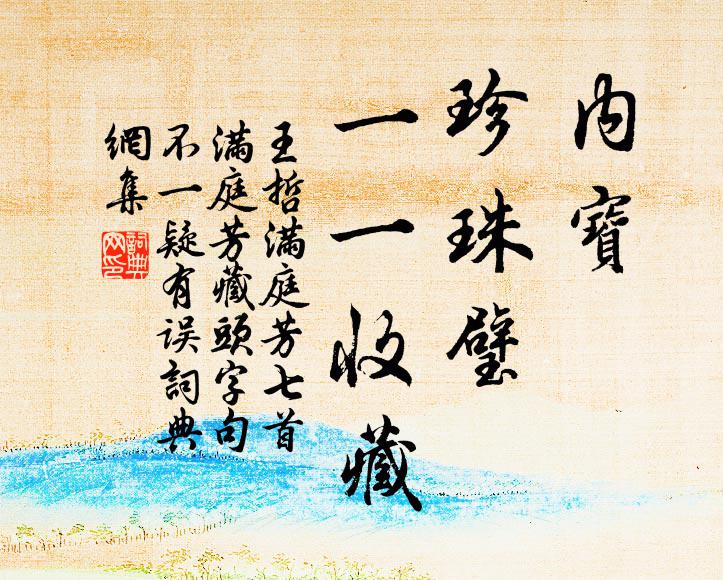 内寶
珍珠璧
一一收藏
王哲滿庭芳七首
滿庭芳藏頭字句
不一疑有误詞典
網集
詞典
网印